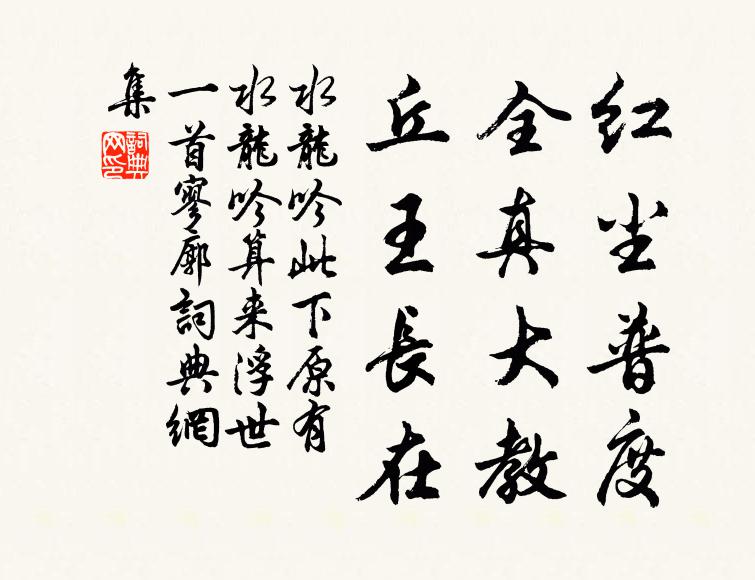 红尘普度
全真大教
丘王長在
水龍吟此下原有
水龍吟算来浮世
一首寥廓詞典網
集
詞典網印